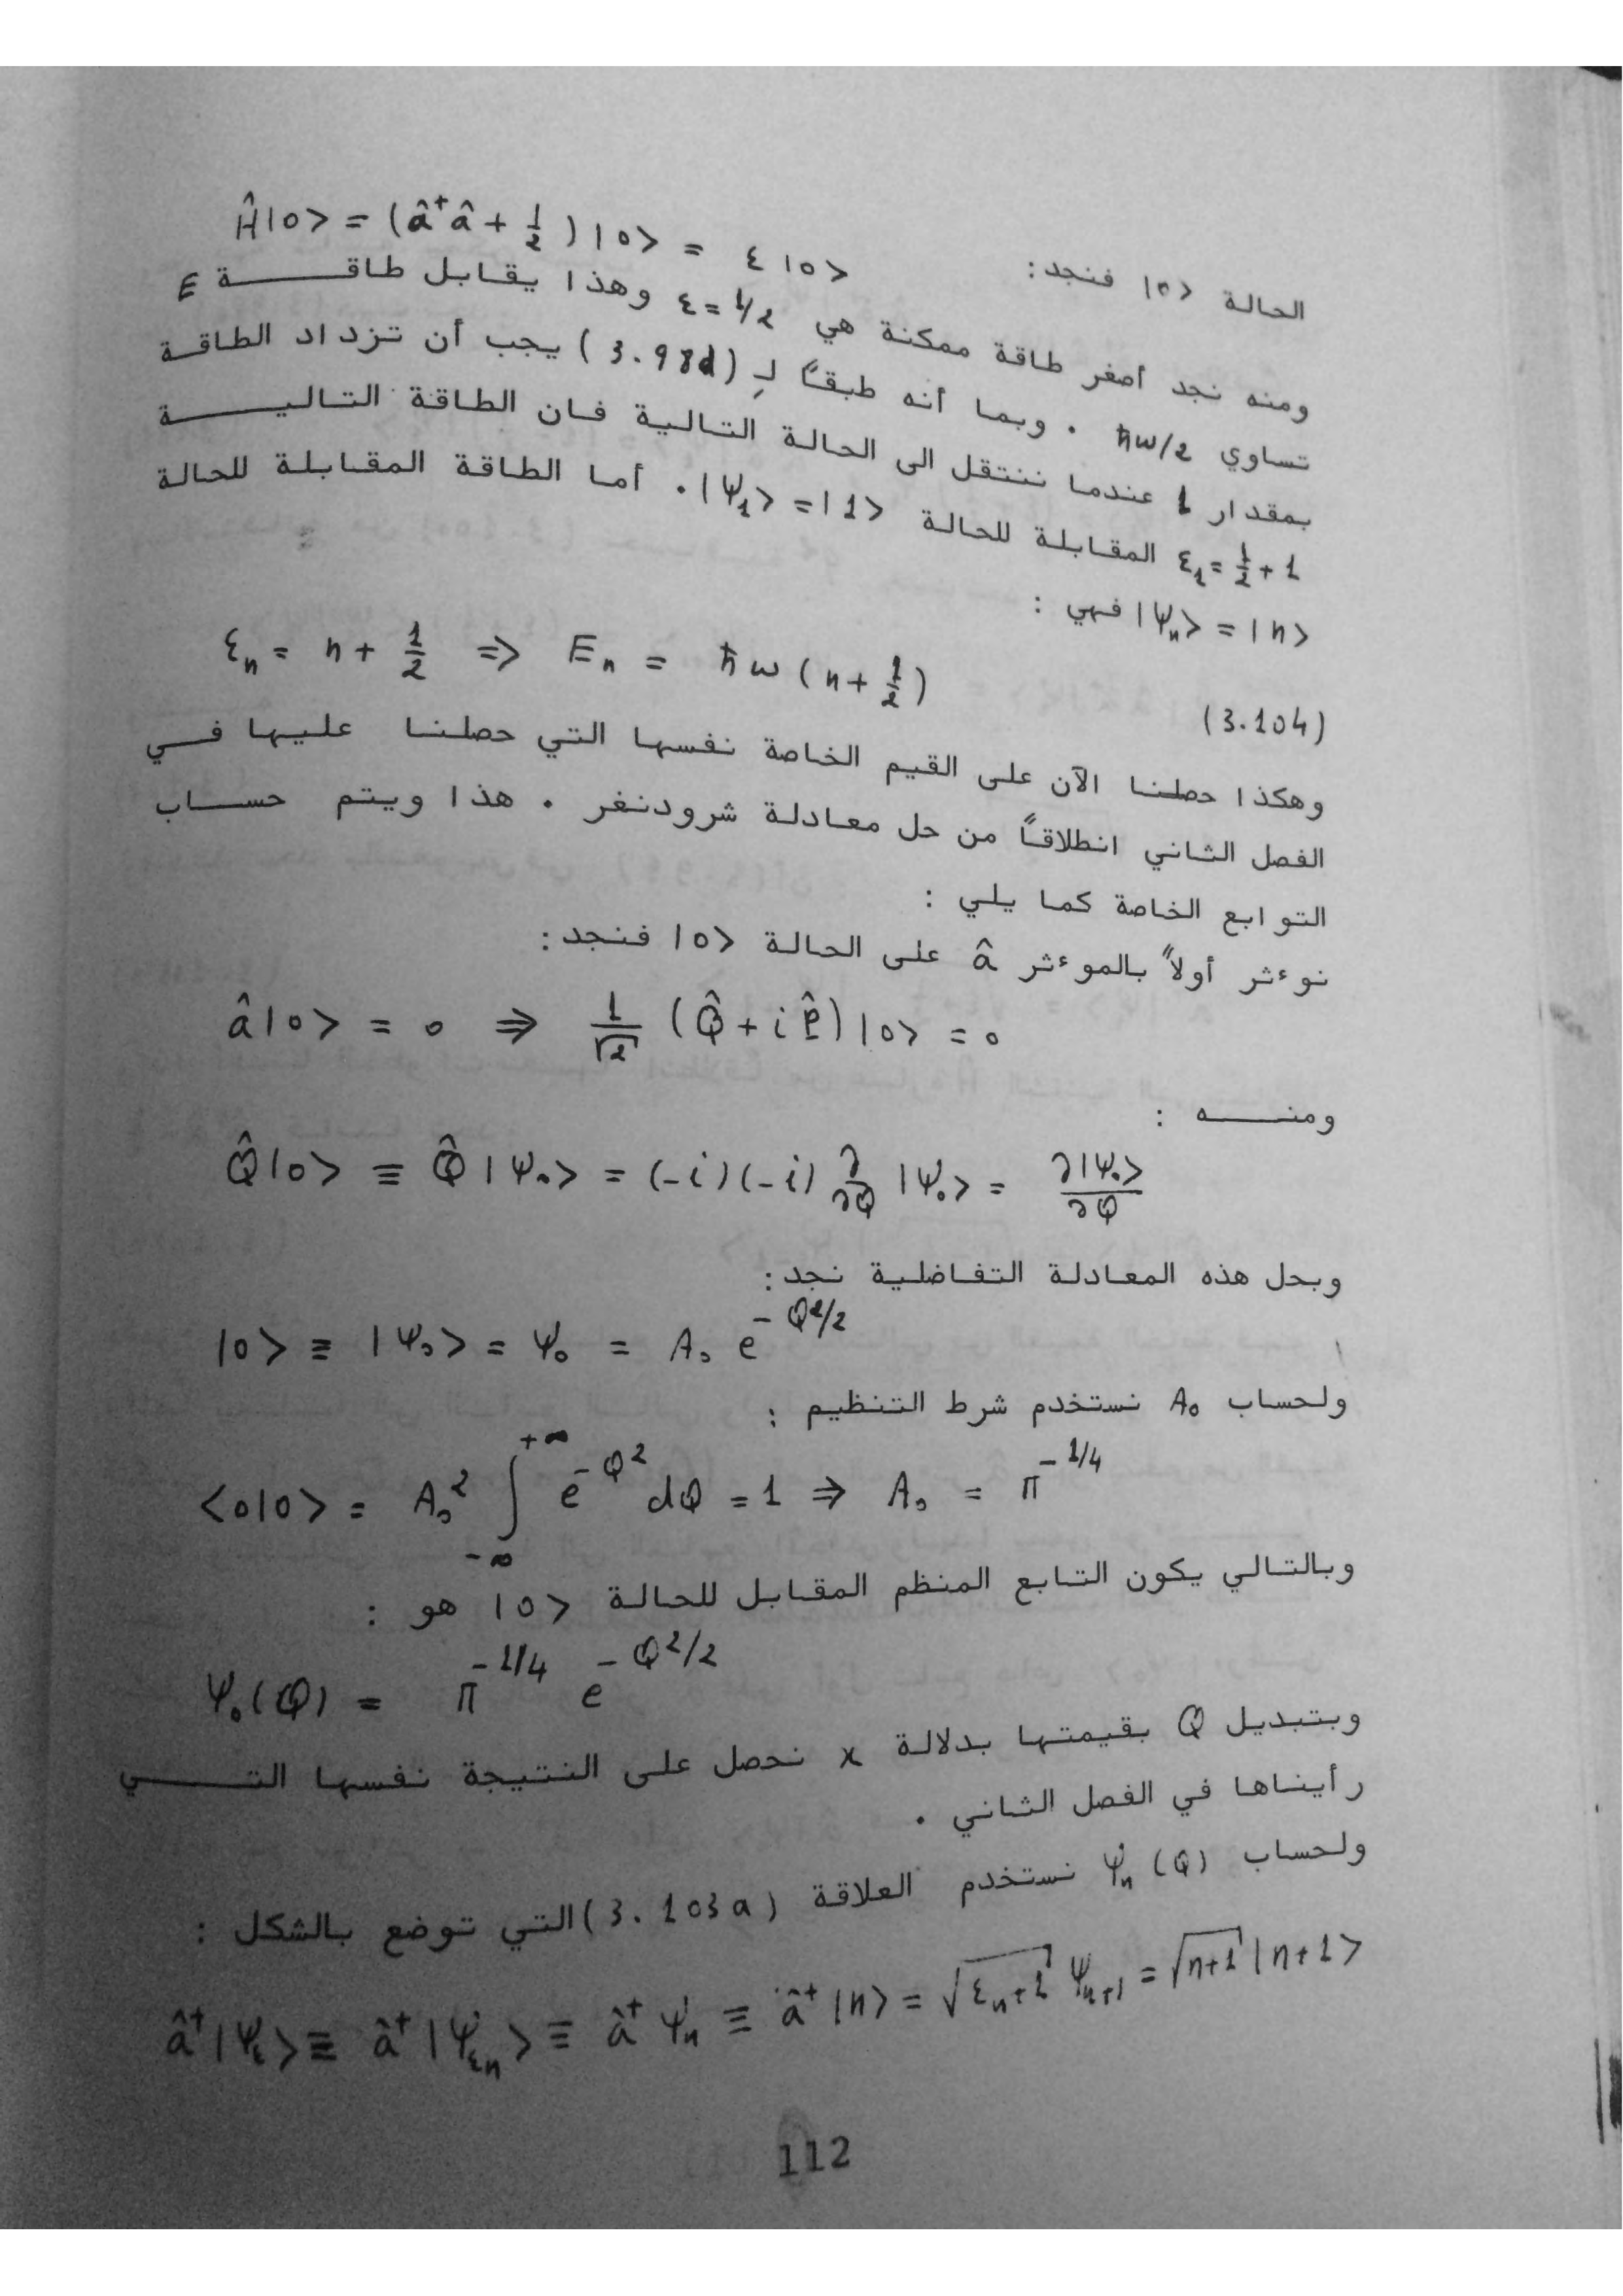 الحالة |0> فنجد : Ĥ|0> = (â⁺â + 1/2)|0> = ε|0>
ومنه نجد أصغر طاقة ممكنة هي ε=1/2 وهذا يقابل طاقة E
تساوي ħω/2 . وبما أنه طبقاً لـ (3.98d) يجب أن تزداد الطاقة
بمقدار 1 عندما ننتقل الى الحالة التالية فان الطاقة التالية
ε₁ = 1/2 + 1 المقابلة للحالة |Ψ₁> = |1> . أما الطاقة المقابلة للحالة
|Ψₙ> = |n> فهي :
εₙ = n + 1/2 => Eₙ = ħω(n + 1/2) (3.104)
وهكذا حصلنا الآن على القيم الخاصة نفسها التي حصلنا عليها في
الفصل الثاني انطلاقاً من حل معادلة شرودنغر . هذا ويتم حساب
التوابع الخاصة كما يلي :
نوءثر أولاً بالموءثر â على الحالة |0> فنجد :
â|0> = 0 ⇒ 1/√2 (Q̂ + iP̂)|0> = 0
ومنه :
Q̂|0> ≡ Q̂|Ψ₀> = (-i)(-i) ∂/∂Q |Ψ₀> = ∂|Ψ₀>/∂Q
وبحل هذه المعادلة التفاضلية نجد :
|0> ≡ |Ψ₀> = Ψ₀ = A₀ e^(-Q²/2)
ولحساب A₀ نستخدم شرط التنظيم :
<0|0> = A₀² ∫_{-∞}^{+∞} e^(-Q²) dQ = 1 ⇒ A₀ = π^(-1/4)
وبالتالي يكون التابع المنظم المقابل للحالة |0> هو :
Ψ₀(Q) = π^(-1/4) e^(-Q²/2)
وبتبديل Q بقيمتها بدلالة x نحصل على النتيجة نفسها التي
رأيناها في الفصل الثاني .
ولحساب Ψₙ(Q) نستخدم العلاقة (3.103a) التي توضع بالشكل :
â⁺|Ψ_ε> ≡ â⁺|Ψ_εₙ> ≡ â⁺Ψₙ ≡ â⁺|n> = √(εₙ+1) Ψₙ₊₁ = √(n+1) |n+1>
112